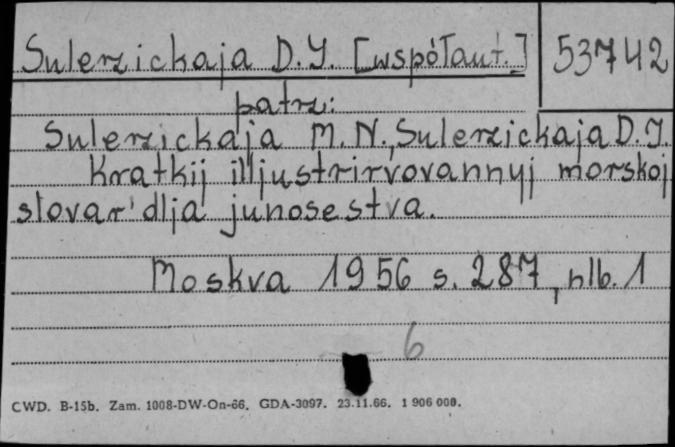 Sulerzickaja D.J. [współaut.] 53742
patrz:
Sulerzickaja M.N., Sulerzickaja D.J.
Kratkij illjustrirvovannyj morskoj
slovar' dlja junosestva.
Moskva 1956 s. 287, nlb. 1
6
CWD. B-15b. Zam. 1008-DW-On-66. GDA-3097. 23.11.66. 1 906 000.